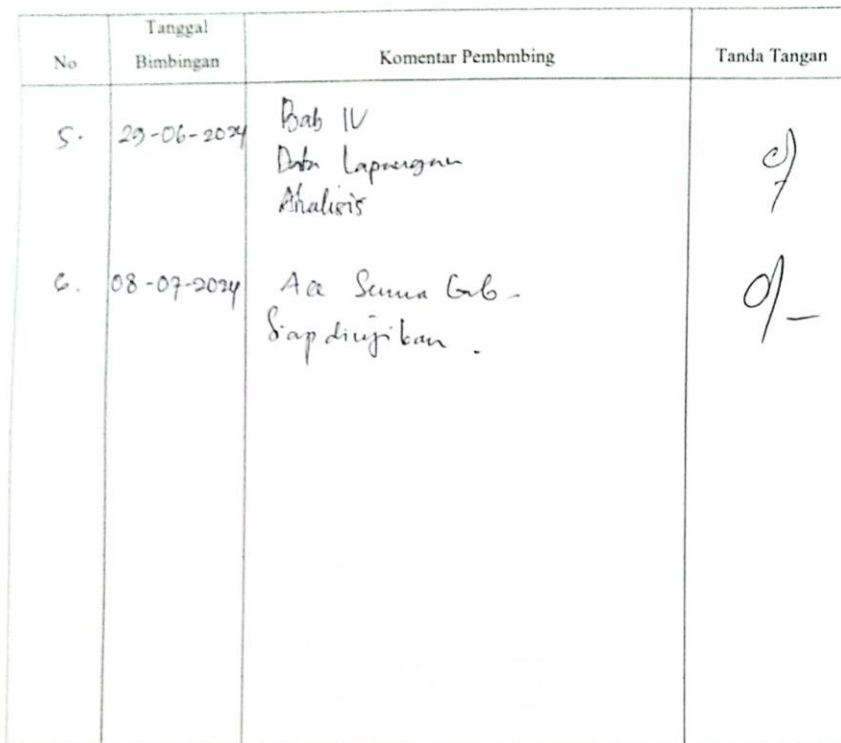 No
Tanggal
Bimbingan
Komentar Pembmbing
Tanda Tangan
5. 29-06-2024 Bab IV
Data Lapangan
Analisis
6. 08-07-2024 Acc Semua bab -
Siap diujikan .